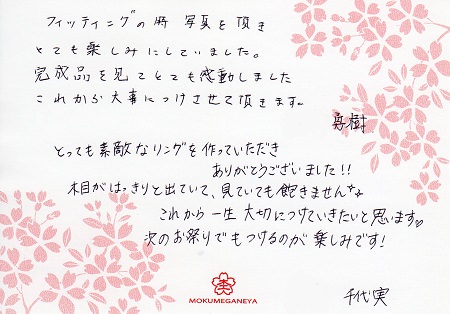 フィッティングの際 写真を頂き
とても楽しみにしていました。
完成品を見てとても感動しました
これから大事につけさせて頂きます。
樹
とっても素敵なリングを作っていただき
ありがとうございました!!
木目がはっきりと出ていて、見ていても飽きません
これから一生 大切につけていきたいと思います♡
次のお祭りでもつけるのが楽しみです!
千代実
MOKUMEGANEYA